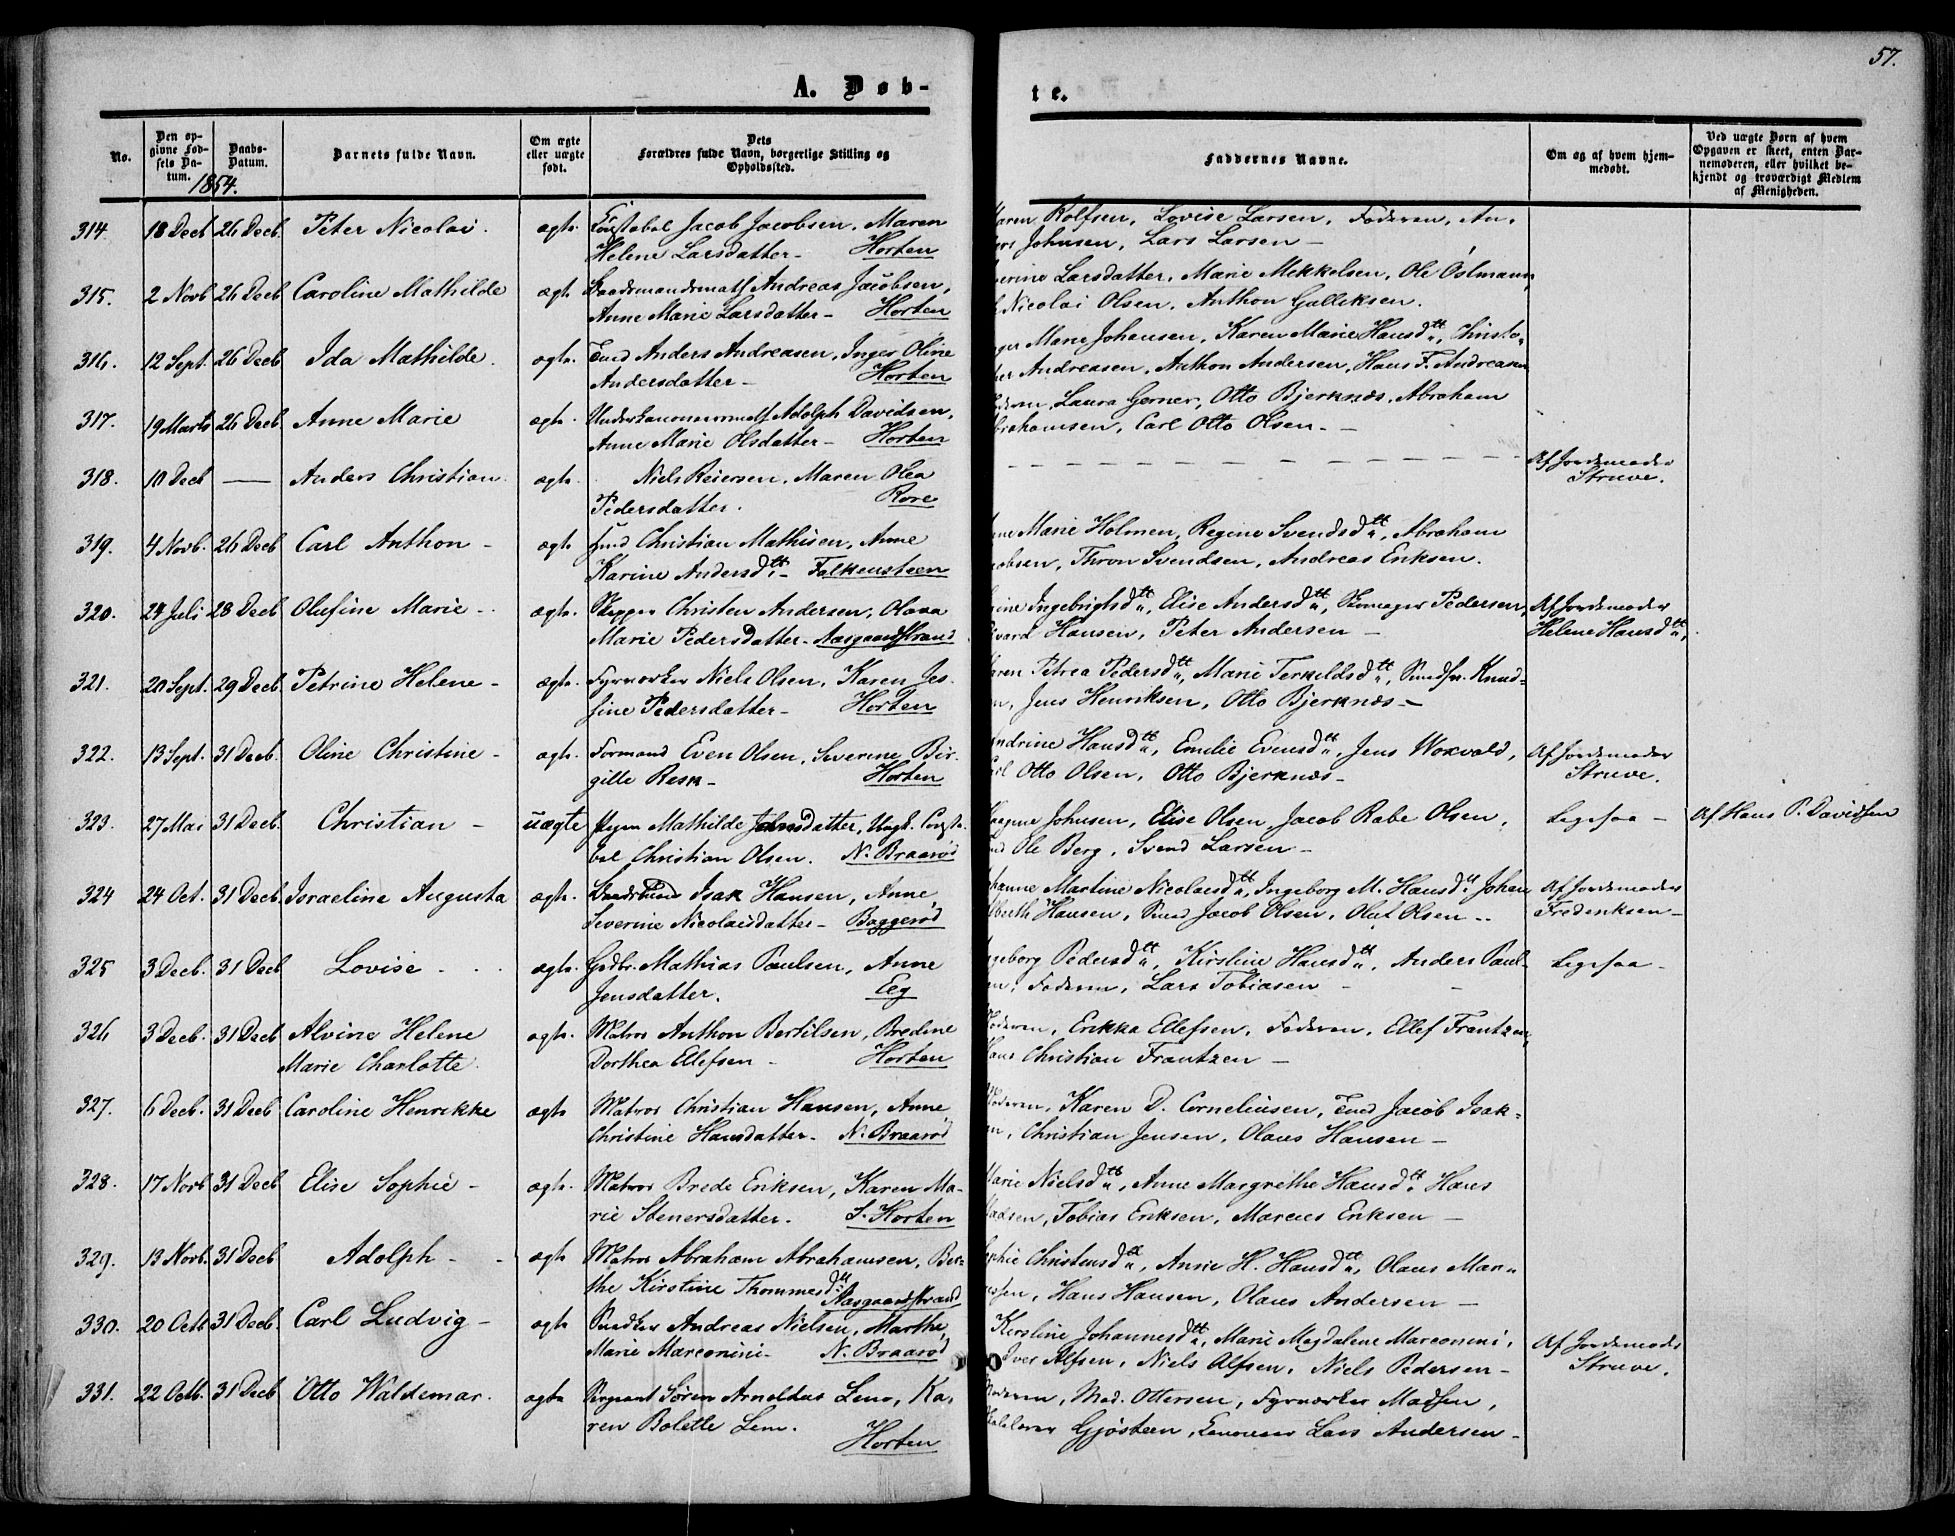 57.
A. Døb-
te.
No.
Den op-
givne Fød-
sels Da-
tum.
Daabs-
Datum.
Barnets fulde Navn.
Om ægte
eller uægte
født.
Dets
Forældres fulde Navn, borgerlige Stilling og
Opholdssted.
Faddernes Navne.
Om og af hvem hjem-
medøbt.
Ved uægte Børn af hvem
Opgaven er skeet, enten Bar-
nemoderen, eller hvilket be-
kjendt og troværdigt Medlem
af Menigheden.
1854.
314. 18 Decb 26 Decb. Peter Nicolai. ægte Jacob Jacobsen, Maren
Helene Larsdatter- Horten
Rolfsen, Lovise Larsen, Faderen, An-
Johnsen, Lars Larsen-
315. 2 Novb 26 Decb Caroline Mathilde ægte Andreas Jacobsen,
Anne Marie Larsdatter- Horten
Larsdatter, Marie Mekkelsen, Ole Oslmann,
Nicolai Olsen, Anthon Gulliksen.
316. 12 Sept. 26 Decb Ida Mathilde. ægte. Tmd Anders Andreasen, Inger Oline
Andersdatter- Horten
Marie Johansen, Karen Marie Hansdtt., Christo-
Andreasen, Anthon Andersen, Hans F. Andreasen
317. 19 Marts 26 Decb Anne Marie ægte. Adolph Davidsen,
Anne Marie Olsdatter- Horten
Laura Gerner, Otto Bjerknæs, Abraham
Abrahamsen, Carl Otto Olsen.-
318. 10 Decb — Anders Christian. ægte. Niels Reiersen, Maren Olea
Pedersdatter. Rore
Af Jordemoder
Struve.
319. 4 Novb. 26 Decb Carl Anthon - ægte Christian Mathisen, Anne
Karine Andersdtt.- Falkensteen
Marie Holmen, Regine Svendsdtt., Abraham
Thron Svendsen, Andreas Eriksen.
320. 24 Juli 28 Decb Olufine Marie - ægte. Skipper Christen Andersen, Olava
Marie Pedersdatter- Aasgaardstrand
Ingebrigtsdtt., Elise Andersdtt., Pedersen,
Hansen, Peter Andersen-
Af Jordemoder
Helene Hansdtt.
321. 20 Sept. 29 Decb Petrine Helene - ægte. Fyrværker Niels Olsen, Karen Jes-
sine Pedersdatter- Horten
Petrea Pedersdtt., Marie Terkildsdtt., Knud-
Jens Henriksen, Otto Bjerknæs-
322. 13 Sept. 31 Decb. Oline Christine - ægte. Formand Even Olsen, Severine Bir-
gitte Resk- Horten
Hansdtt., Emilie Evensdtt., Jens Woxvold,
Otto Olsen, Otto Bjerknæs-
Af Jordemoder
Struve.
323. 27 Mai 31 Decb. Christian - uægte Pigen Mathilde Johnsdatter, Ungk. Consta-
bel Christian Olsen. N. Braarød
Johnsen, Elise Olsen, Jacob Rabe Olsen,
Ole Berg, Svend Larsen-
Ligesaa -
Af Hans P. Davidsen
324 24 Oct. 31 Decb. Israeline Augusta ægte. Isak Hansen, Anne
Severine Nicolaisdatter- Baggerød
Martine Nicolaisdtt., Ingeborg M. Hansdtt. Johan
Hansen, Jacob Olsen, Oluf Olsen-
Af Jordemoder
Frederiksen-
325 3 Decb. 31 Decb Lovise - ægte. Gdbr. Mathias Paulsen, Anne
Jensdatter. Eeg
Pedersdtt., Kirstine Hansdtt., Anders Paul-
Faderen, Lars Tobiasen -
Ligesaa -
326 3 Decb. 31 Decb Alvine Helene
Marie Charlotte. ægte. Matros Anthon Bertilsen, Bredine
Dorthea Ellefsen - Horten
Moderen, Erikka Ellefsen, Faderen, Ellef Frantzen,
Hans Christian Frantzen-
327. 6 Decb. 31 Decb Caroline Henrikke ægte Matros Christian Hansen, Anne
Christine Hansdatter- N. Braarød
Moderen, Karen D. Corneliusen, Tmd Jacob Isak-
Christian Jensen, Olaus Hansen-
328. 17 Novb 31 Decb Elise Sophie - ægte. Matros Brede Eriksen, Karen Ma-
rie Stenersdatter. S. Horten
Marie Nielsdtt., Anne Margrethe Hansdtt. Hans
Madsen, Tobias Eriksen, Marcus Eriksen-
329. 13 Novb. 31 Decb Adolph - ægte Matros Abraham Abrahamsen, Ber-
the Kirstine Thommesdtt.
Aasgaardstrand
Christensdtt., Anne H. Hansdtt., Olaus Mar-
Hans Hansen, Olaus Andersen-
330. 20 Octb 31 Decb. Carl Ludvig - ægte Snedker Andreas Nielsen, Marthe
Marie Marconini- N. Braarød
Kirstine Johannesdtt., Marie Magdalene Marconini,
Iver Alfsen, Niels Alfsen, Niels Pedersen-
Af Jordemoder
Struve.
331. 22 Octb. 31 Decb Otto Waldemar. ægte Sergeant Søren Arnoldus Lem, Ka-
ren Bolette Lem. Horten
Moderen, Mad. Ottersen, Fyrværker Madsen,
Gjøsteen, Lars Andersen-